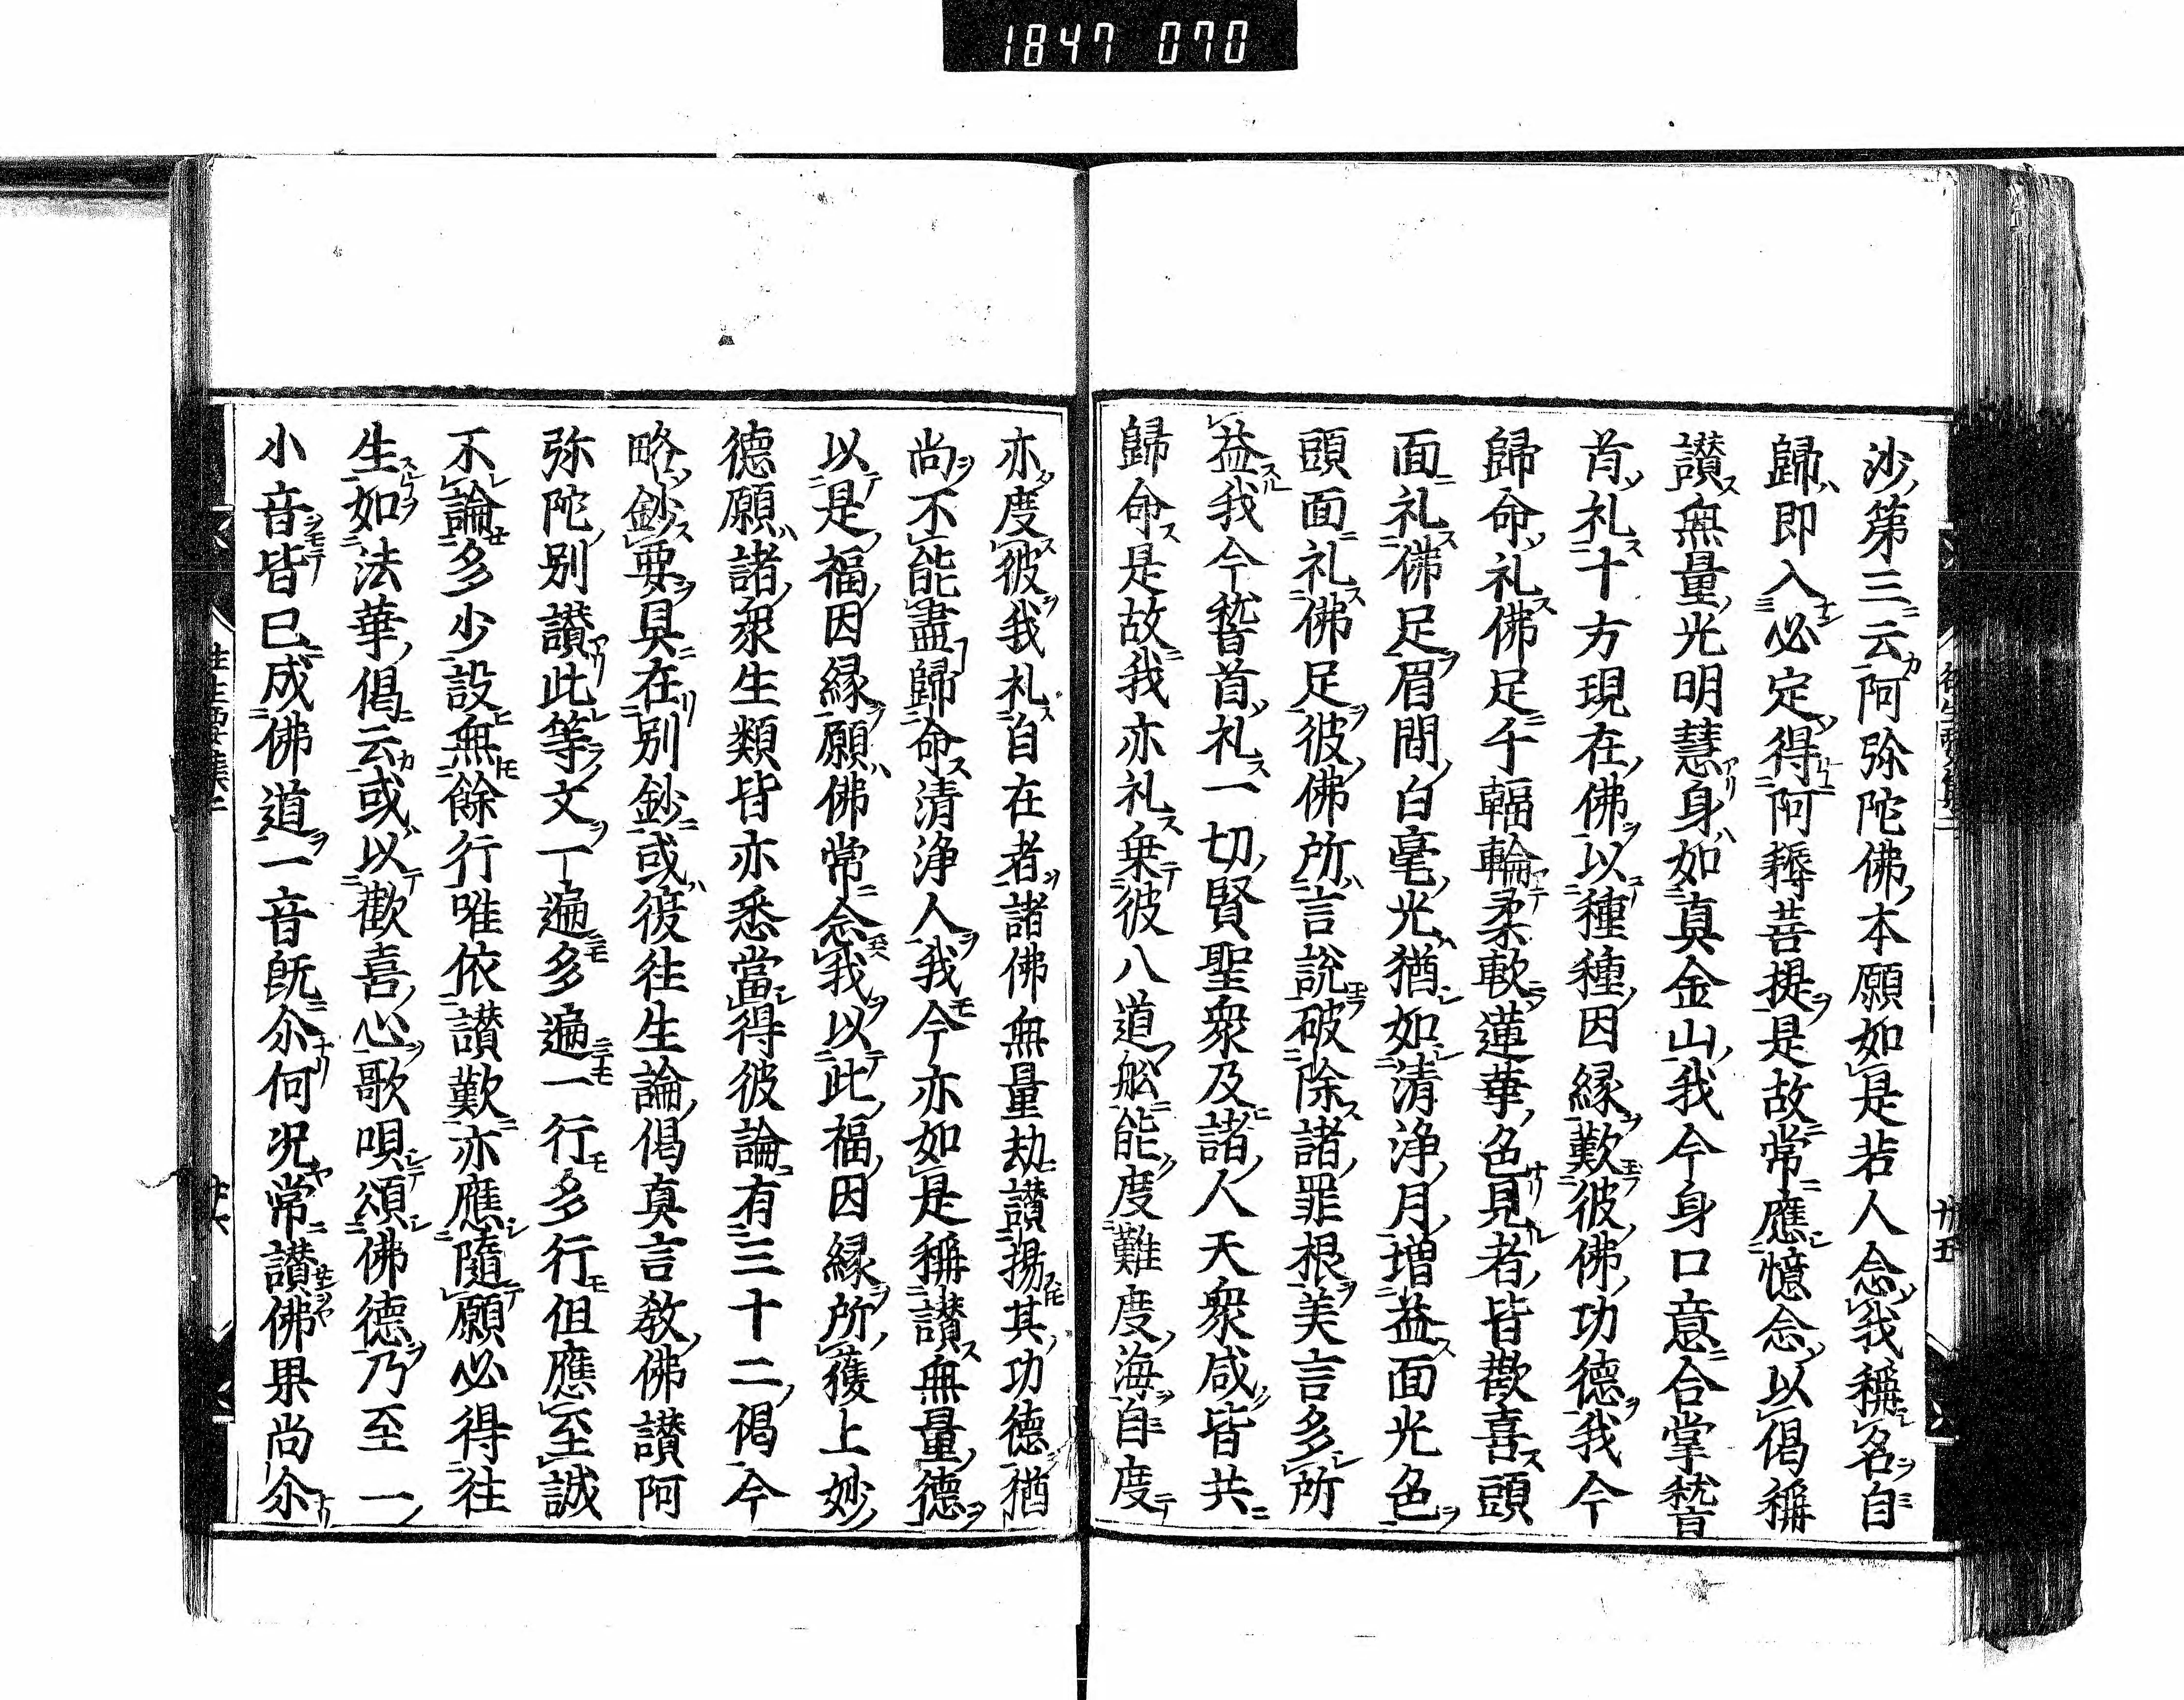 1847 070
沙第三云阿弥陀佛本願如是若人念我稱名自
歸即入必定得阿耨菩提是故常應憶念以偈稱
讃無量光明慧身如真金山我今身口意合掌稽
首礼十方現在佛以種種因縁歎彼佛功德我今
歸命礼佛足千輻輪柔軟蓮華色見者皆歡喜頭
面礼佛足眉間白毫光猶如清浄月増益面光色
頭面礼佛足彼佛所言說破除諸罪根美言多所
益我今稽首礼一切賢聖衆及諸人天衆咸皆共
歸命是故我亦礼乗彼八道舩能度難度海自度
亦度彼我礼自在者諸佛無量劫讃揚其功德猶
尚不能盡歸命清浄人我今亦如是稱讃無量德
以是福因縁願佛常念我以此福因縁所獲上妙
德願諸衆生類皆亦悉當得彼論有三十二偈今
略鈔要具在別鈔或彼往生論偈真言教佛讃阿
弥陀別讃此等文一遍多遍一行多行但應至誠
不論多少設無餘行唯依讃歎亦應隨願必得往
生如法華偈云或以歡喜心歌唄頌佛德乃至一
小音皆已成佛道一音既尒何况常讃佛果尚尒
往生要集二
廿五